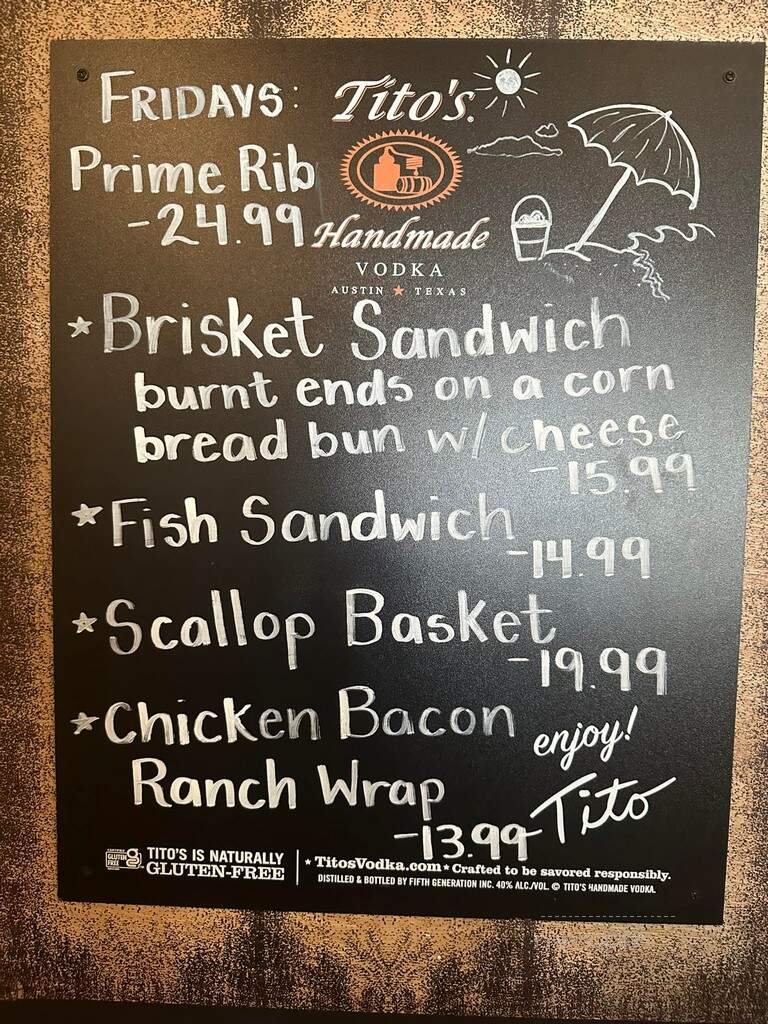 FRIDAYS:
Prime Rib
-24.99
Tito's
Handmade
VODKA
AUSTIN ★ TEXAS
* Brisket Sandwich
burnt ends on a corn
bread bun w/ cheese
-15.99
* Fish Sandwich
-14.99
* Scallop Basket
-19.99
* Chicken Bacon
Ranch Wrap
-13.99
enjoy!
Tito
CERTIFIED
GLUTEN
FREE
TITO'S IS NATURALLY
GLUTEN-FREE
★ TitosVodka.com ★ Crafted to be savored responsibly.
DISTILLED & BOTTLED BY FIFTH GENERATION INC. 40% ALC./VOL. © TITO'S HANDMADE VODKA.